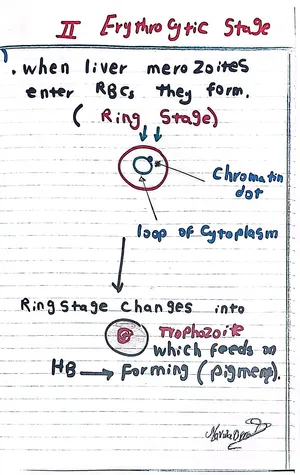 II Erythrocytic Stage
. when liver merozoites
enter RBCs they form.
( Ring Stage)
Chromatin
dot
loop of Cytoplasm
Ring stage changes into
Trophozoite
which feeds on
HB → forming (pigment).